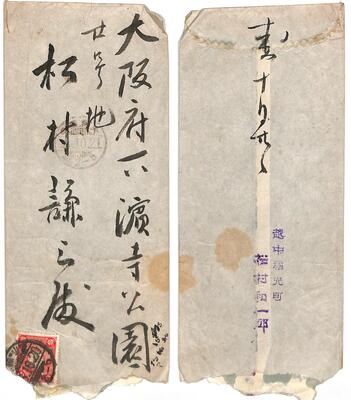 大阪府下濱寺公園
廿号地
松村謙三殿
十月廿
越中福光町
松村和一郎